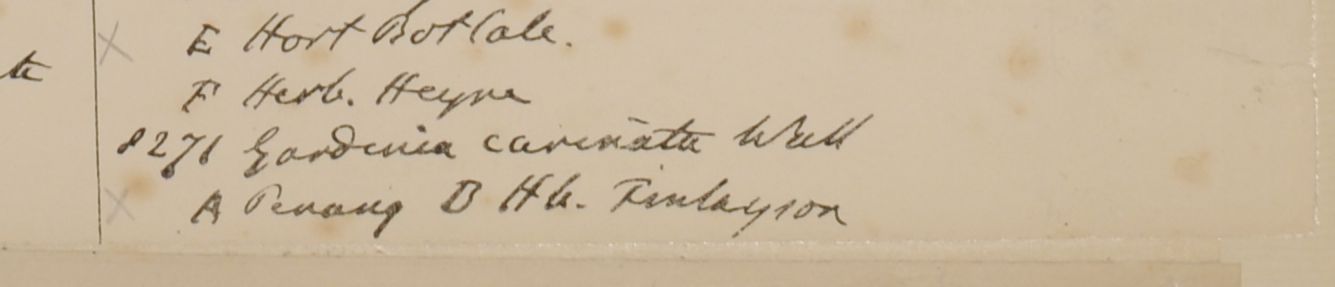 E Hort Bot Calc.
te
F Herb. Heyne
8271 Gardenia carinata Wall
A Penang B Hb. Finlayson